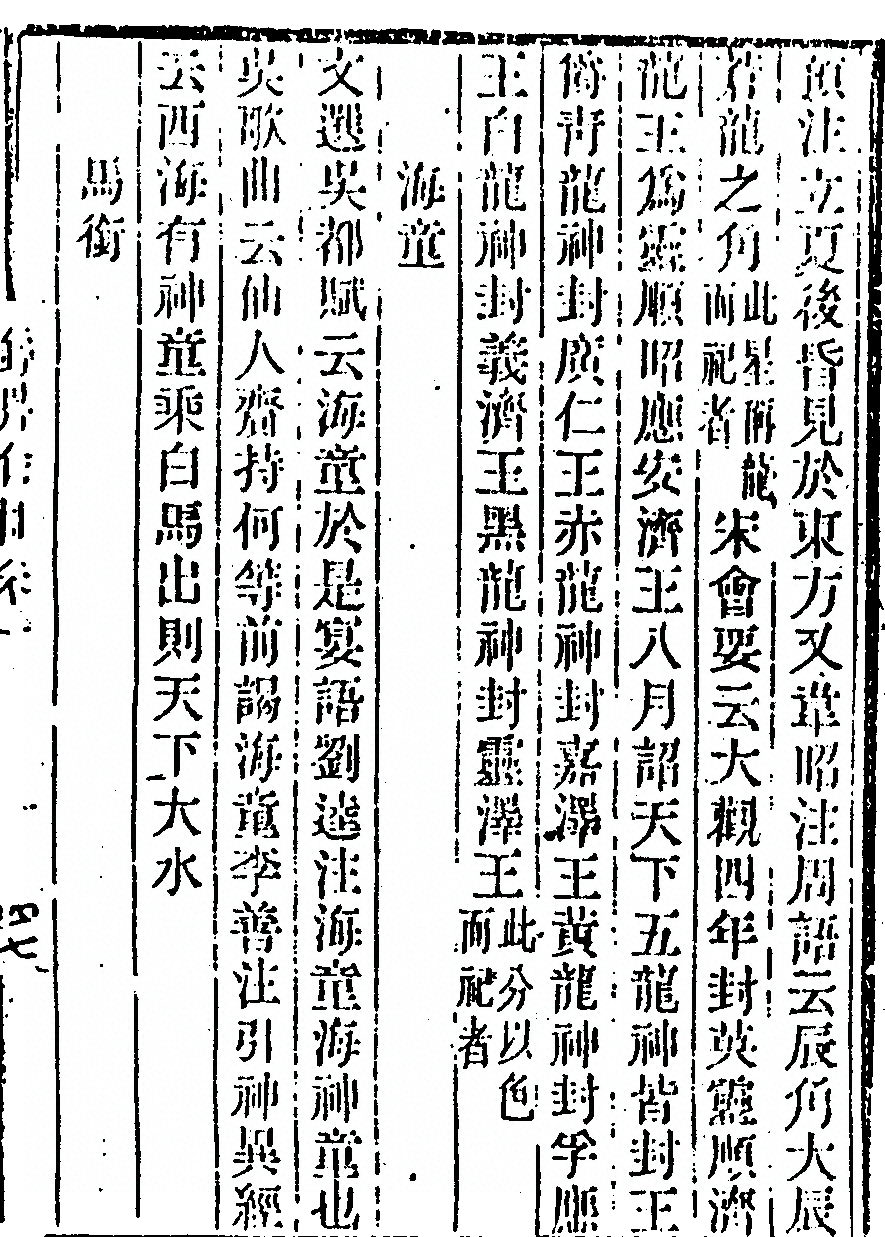 預注立夏後昏見於東方又韋昭注周語云辰角大辰
蒼龍之角此星稱龍而祀者宋會要云大觀四年封英靈順濟
龍王爲靈順昭應安濟王八月詔天下五龍神皆封王
爵青龍神封廣仁王赤龍神封嘉澤王黃龍神封孚應
王白龍神封義濟王黑龍神封靈澤王此分以色而祀者
海童
文選吳都賦云海童於是宴語劉逵注海童海神童也
吳歌曲云仙人齎持何等前謁海童李善注引神異經
云西海有神童乘白馬出則天下大水
馬銜